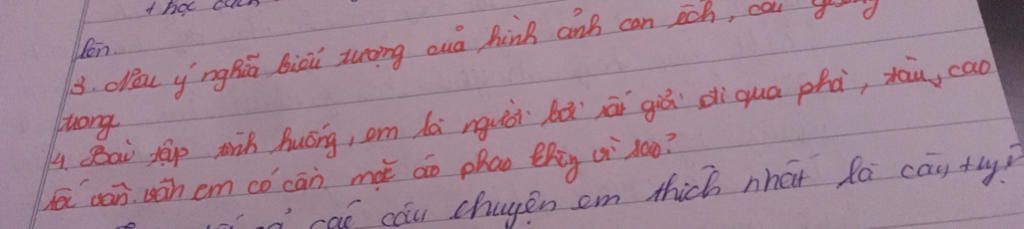 + học cách
lên.
3. Nêu ý nghĩa biểu tượng của hình ảnh con ếch, cái giếng
trong
4. Bài tập tình huống, em là người bơi rất giỏi đi qua phà, tàu, cao
tốc vẫn em có cần mặc áo phao không vì sao?
các câu chuyện em thích nhất là câu